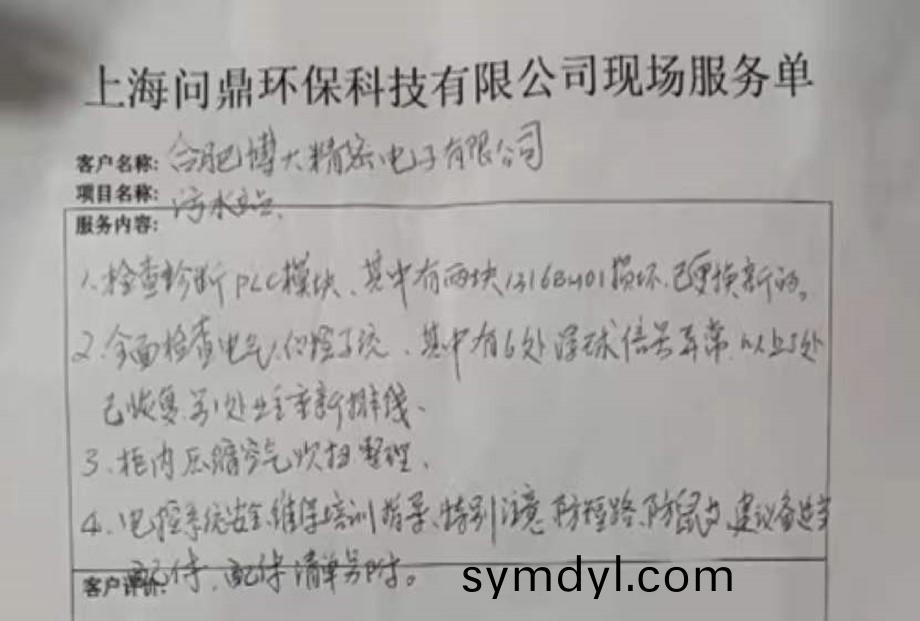 上海问鼎环保科技有限公司现场服务单
客户名称: 合肥博大精密电子有限公司
项目名称: 污水站
服务内容:
1、检查诊断PLC模块、其中有两块损坏.已更换新的。
2、全面检查电气系统、其中有6处浮球信号异常.以上5处
已恢复.另1处业主重新排线、
3、柜内压缩空气吹扫整理、
4、电控系统安全维保培训指导、特别注意防短路、防鼠.建议备适当
配件、配件清单另附。
客户评价:
symdyl.com